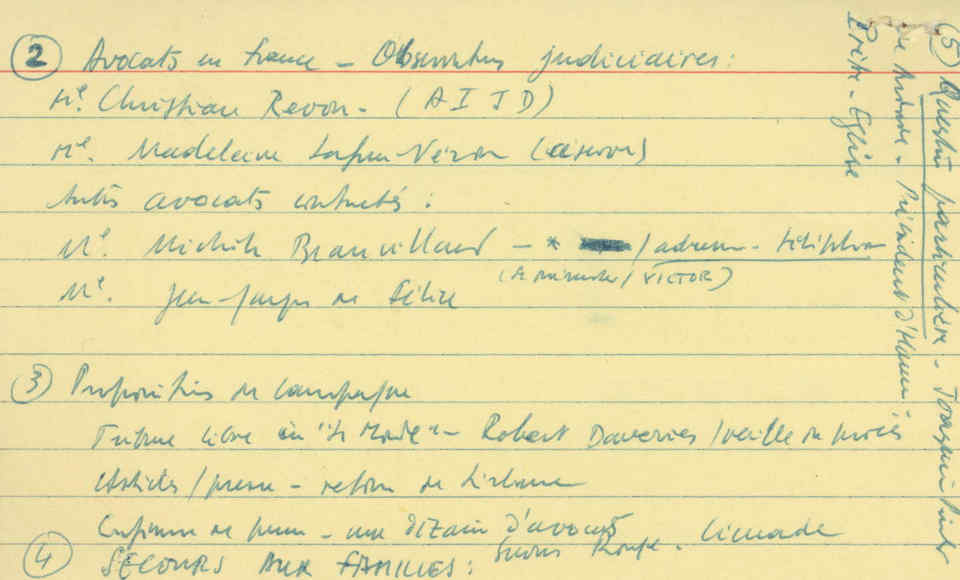 ② Avocats en France - Observateurs judiciaires :
Me. Christian Revon - (A I J D)
Me. Madeleine Lafue-Véron (Cimade)
Autres avocats contactés :
Me. Michèle Beauvillard - * / adresse - téléphone
(A demander / VICTOR)
Me. Jean-Jacques de Félice
③ Propositions de Campagne
Tribune libre in "Le Monde" - Robert Davezies / veille du procès
Articles / presse - retour de Lisbonne
Conférence de presse - une dizaine d'avocats
④ SECOURS AUX FAMILLES : Secours Rouge - Cimade
⑤ Question particulière -
de Andrade - Président d'Honneur
Prêtre - Eglise